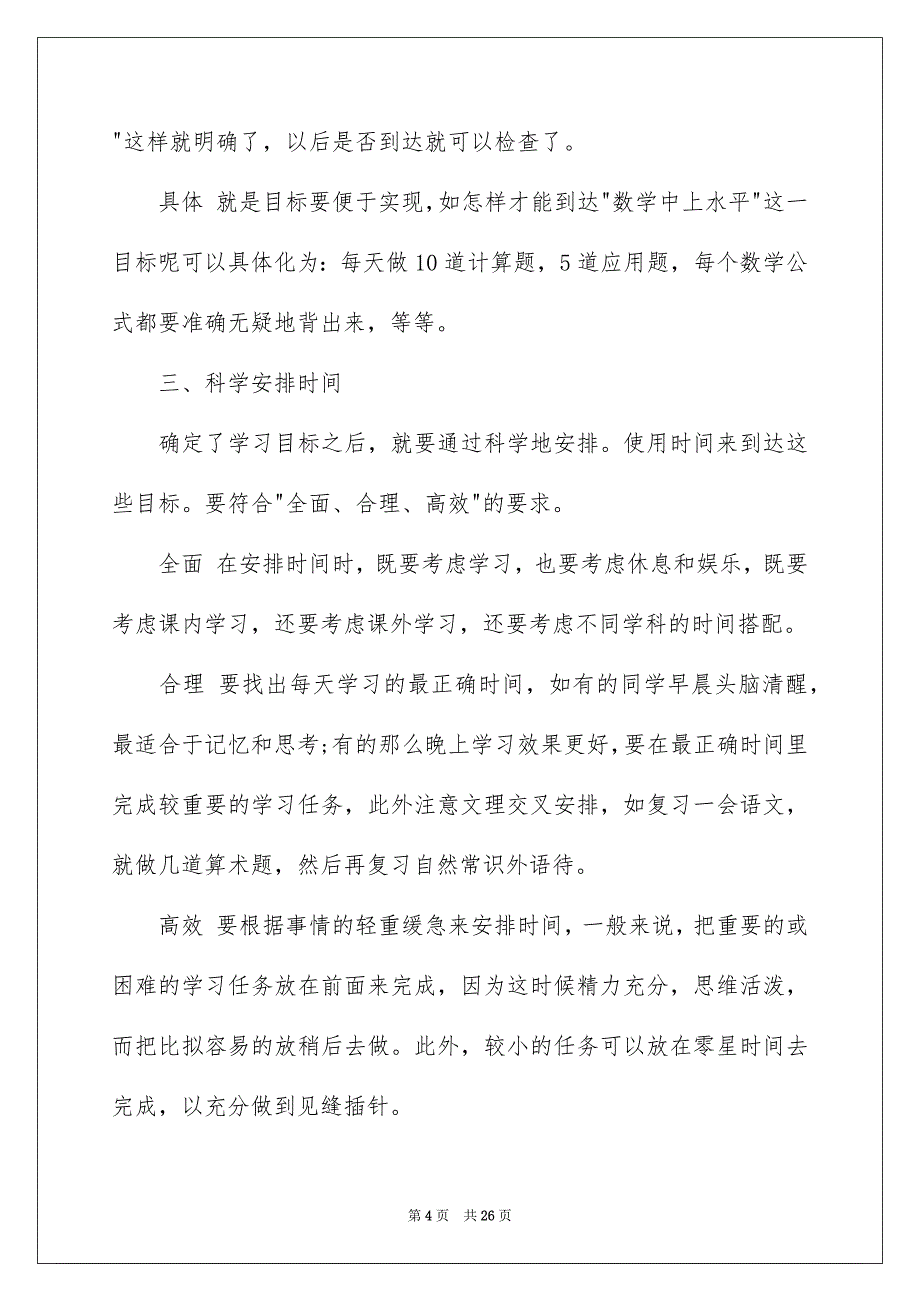 "这样就明确了，以后是否到达就可以检查了。
具体 就是目标要便于实现，如怎样才能到达"数学中上水平"这一
目标呢可以具体化为：每天做10道计算题，5道应用题，每个数学公
式都要准确无疑地背出来，等等。
三、科学安排时间
确定了学习目标之后，就要通过科学地安排。使用时间来到达这
些目标。要符合"全面、合理、高效"的要求。
全面 在安排时间时，既要考虑学习，也要考虑休息和娱乐，既要
考虑课内学习，还要考虑课外学习，还要考虑不同学科的时间搭配。
合理 要找出每天学习的最正确时间，如有的同学早晨头脑清醒，
最适合于记忆和思考;有的那么晚上学习效果更好，要在最正确时间里
完成较重要的学习任务，此外注意文理交叉安排，如复习一会语文，
就做几道算术题，然后再复习自然常识外语待。
高效 要根据事情的轻重缓急来安排时间，一般来说，把重要的或
困难的学习任务放在前面来完成，因为这时候精力充分，思维活泼，
而把比拟容易的放稍后去做。此外，较小的任务可以放在零星时间去
完成，以充分做到见缝插针。
第4页 共26页